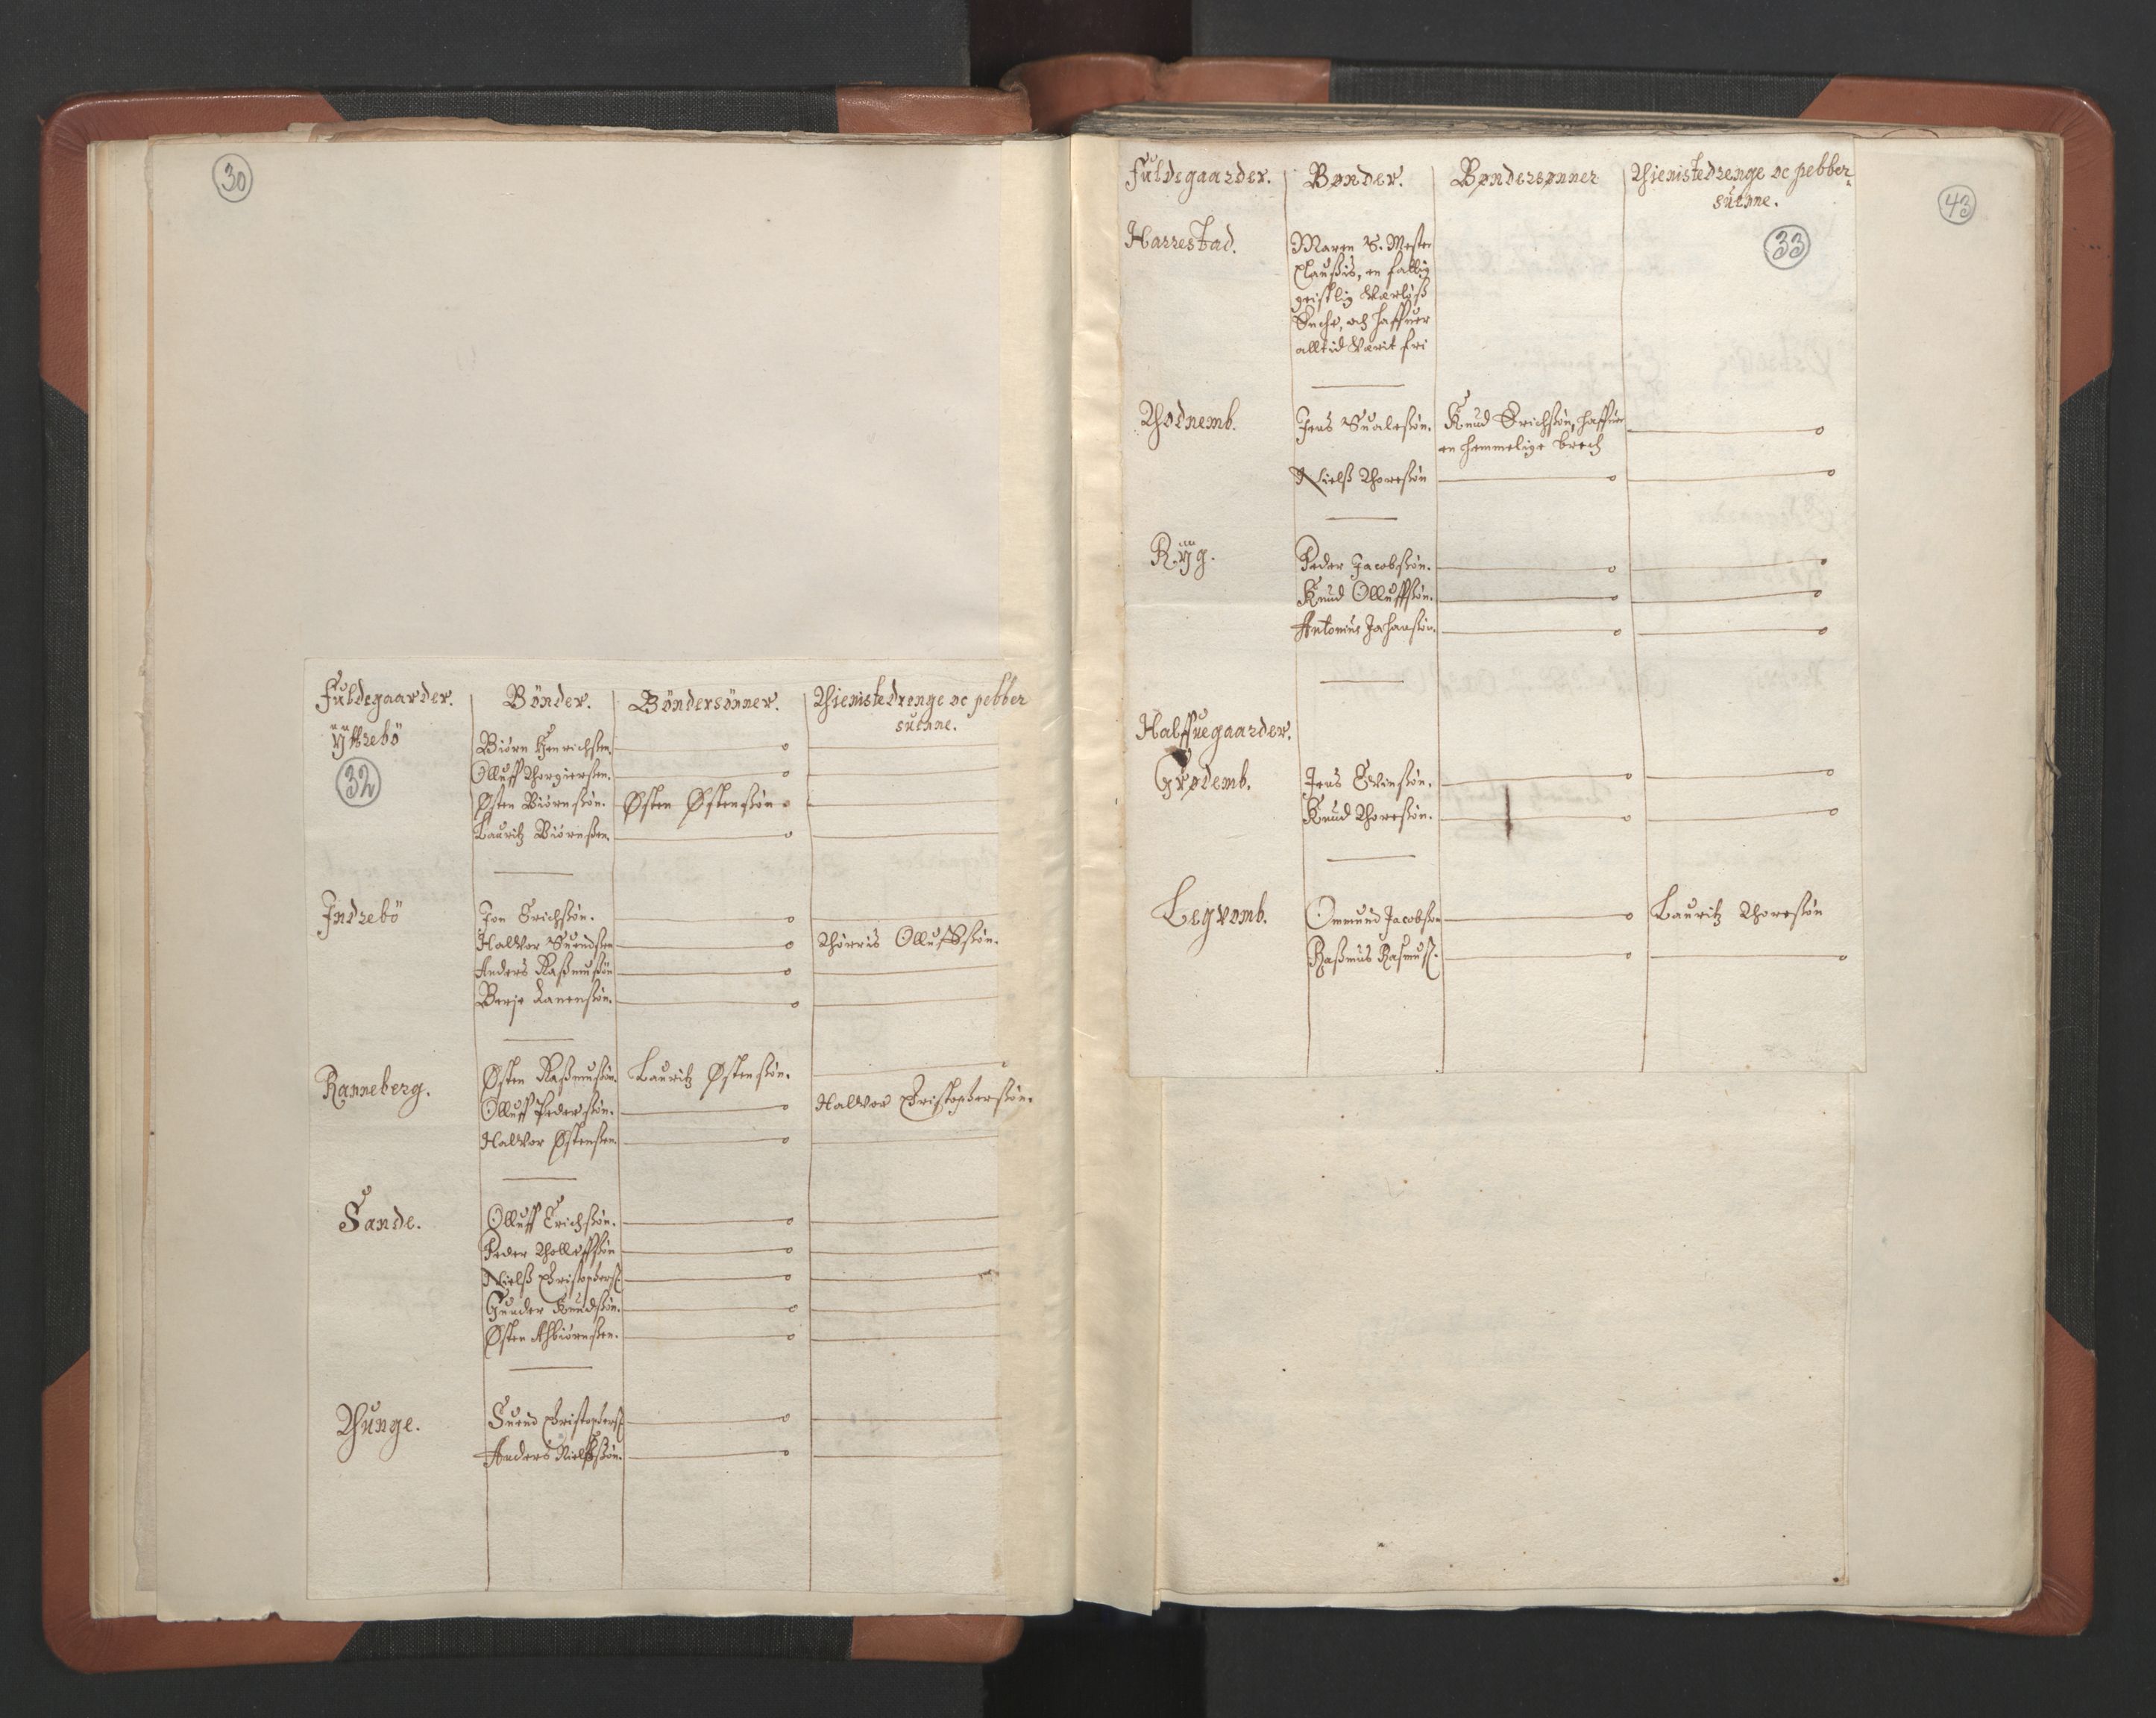 30
Fuldegaarder. Bönder. Böndersönner. Thienistedrenge oc pebber
suenne.
Ÿttrebö
32
Biörn Henrichßen. o
Olluff Thorgierßen. o
Østen Biörnßön. Østen Østenßön o
Lauritz Biörnßen. o
Indrebö Jon Erichßön. o
Halvor Suendßen o Thörris Olluffßön.
Anders Raßmußön o
Berje Lanenßön. o
Ranneberg. Østen Raßmußön. Lauritz Østenßön.
Olluff Pederßön. o Halvor Christopherßön.
Halvor Østenßen. o
Sande. Olluff Erichßön. o
Peder Tholluffßön o
Nielß Christopherß. o
Gunder Knudßön. o
Østen Aßbiörnßen. o
Thunge. Suend Christopherß. o
Anders Nielßön. o
43
Fuldegaarder. Bønder. Bøndersønner Thienistedrenge oc pebber
suenne.
33
Harrestad. Maren S. Mester
Claußis, en fattig
geistlig Værløß
Enche, och haffuer
alltid Værit fri
Thodnemb. Jens Sualeßøn. Knud Erichßøn, haffuer o
en hemmelige brech
Nielß Thoreßøn o o
Rÿg. Peder Jacobßøn. o o
Knud Olluffßøn. o o
Antonius Johanßøn. o o
Halffuegaarder.
Grødemb. Jens Evinßøn. o o
Knud Thoreßøn. o o
Legvomb. Ommund Jacobßøn o Lauritz Thoreßøn
Raßmus Rasmuß. o o